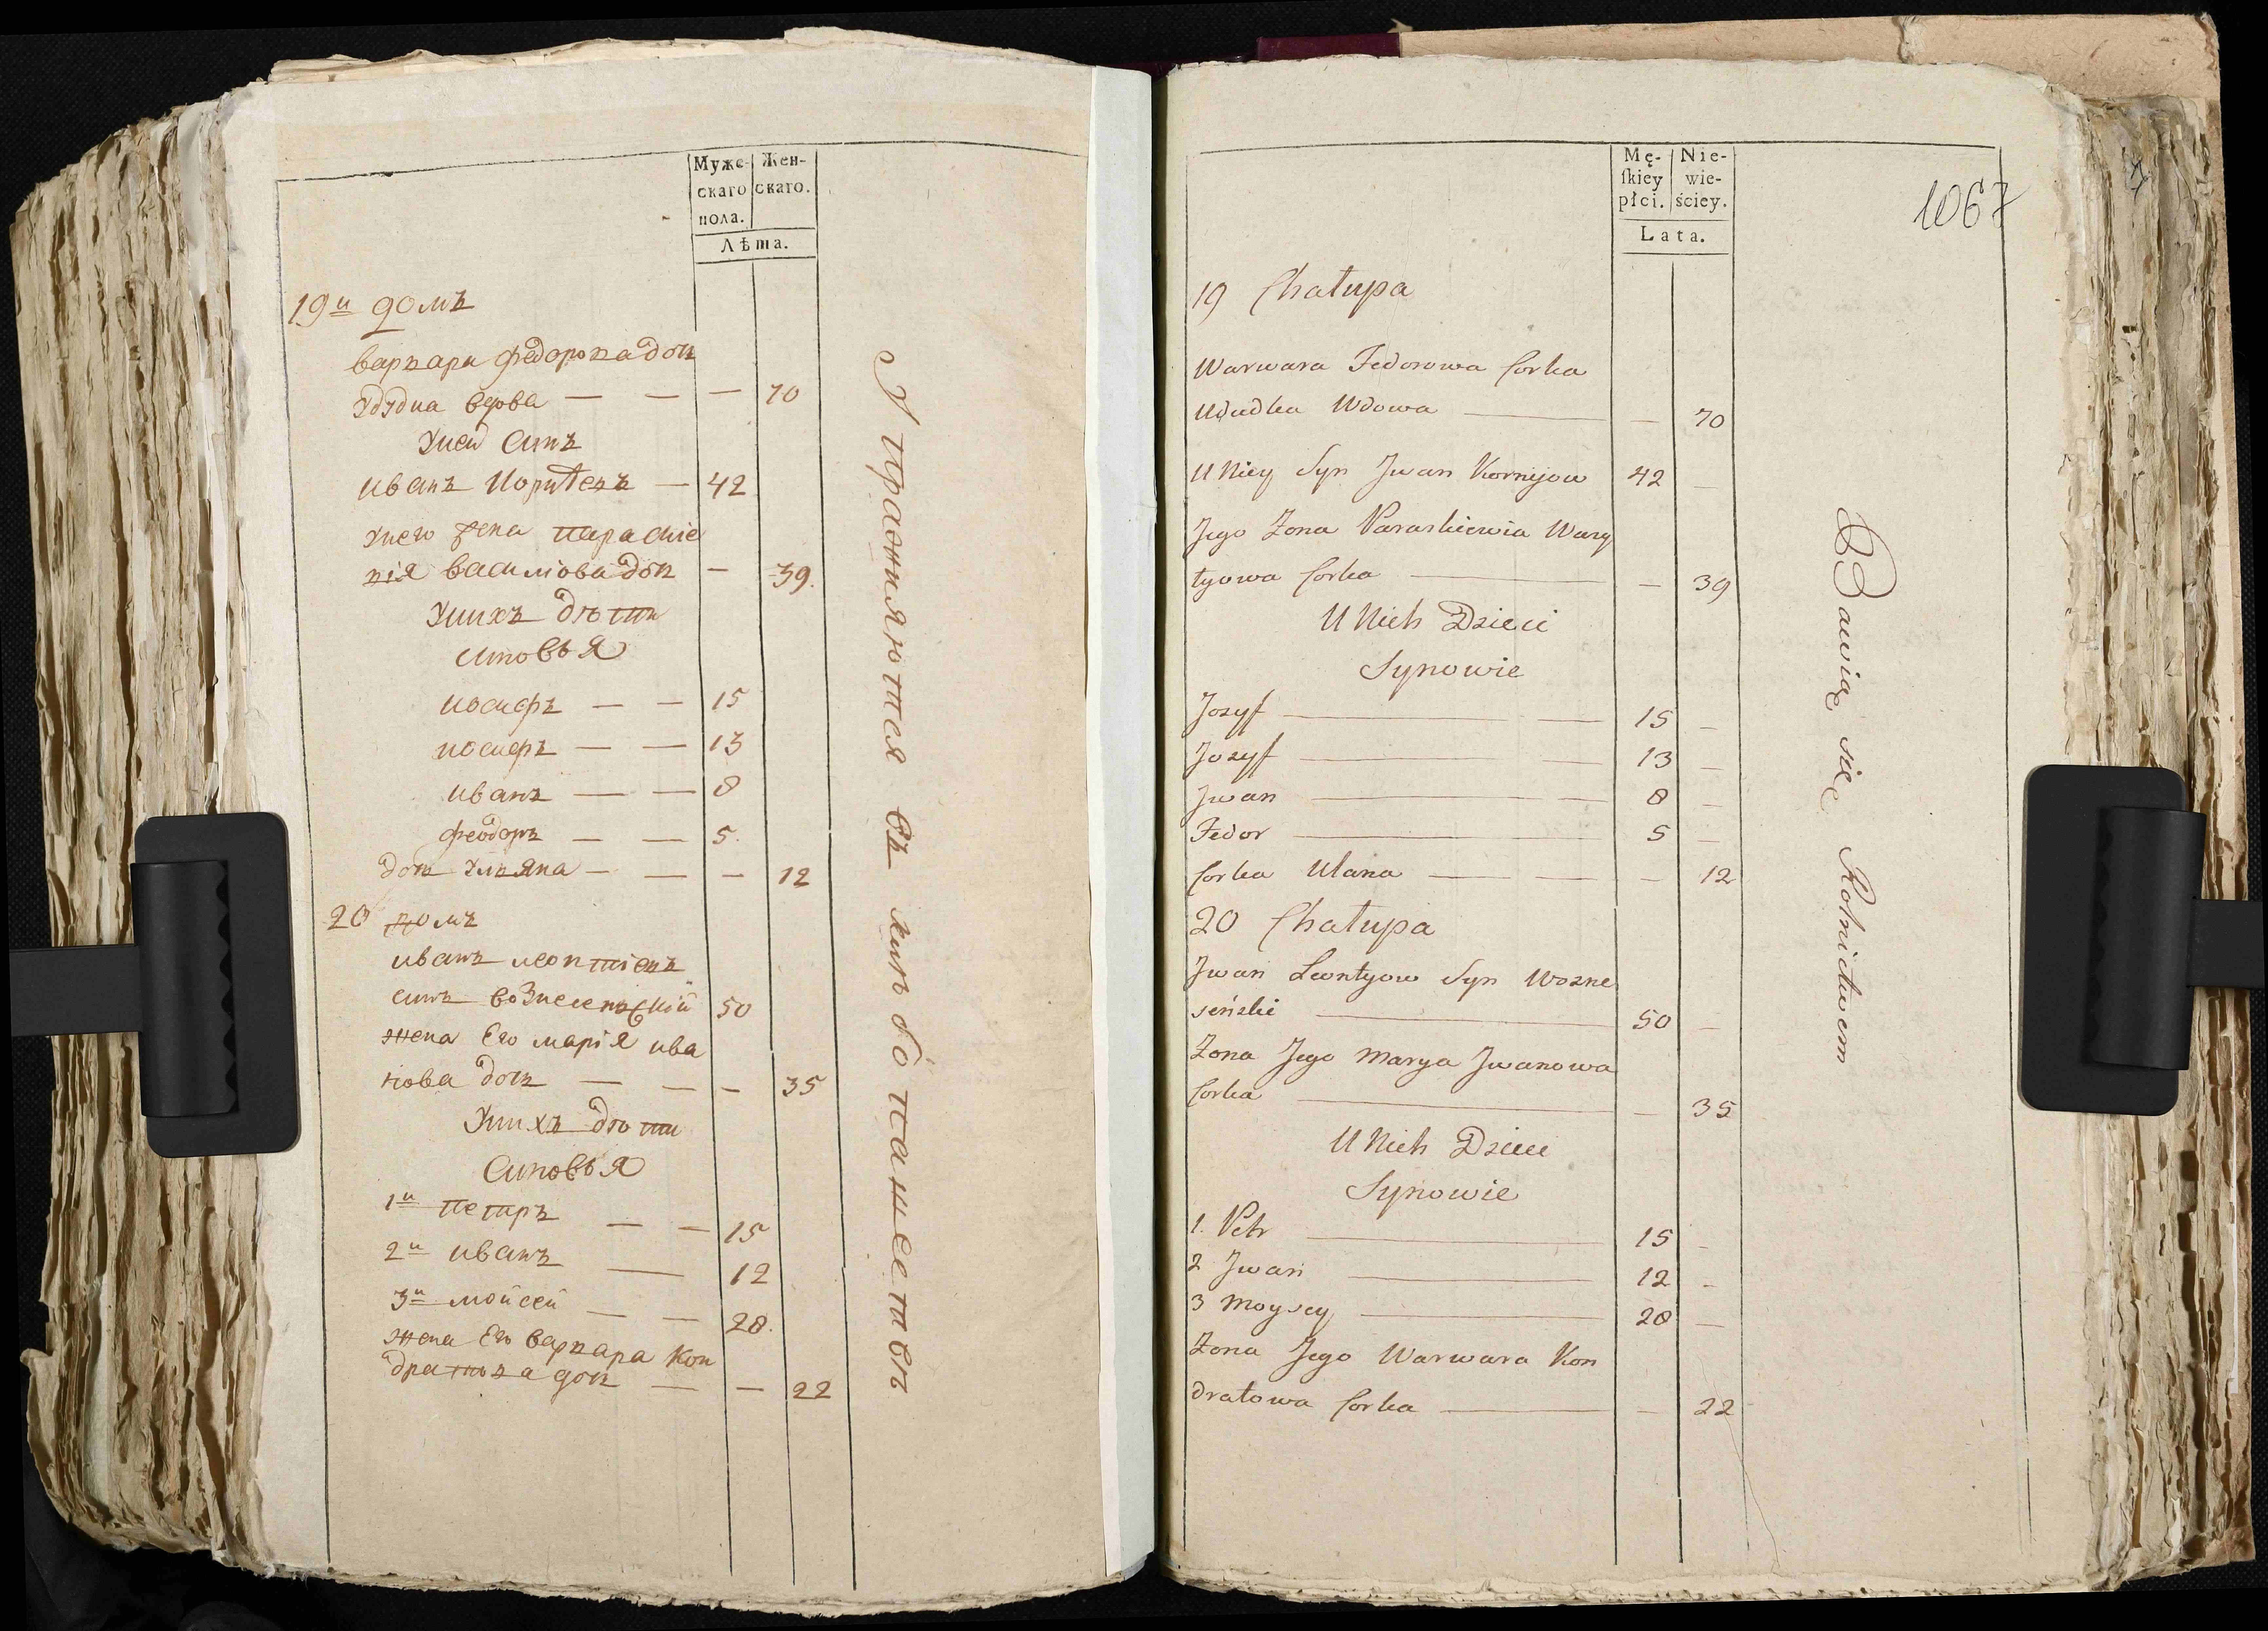 Муже-
скаго
пола.
Жен-
скаго.
Лѣта.
19й домъ
варвара федорова доч
вдова — — — 70
Унеи синъ
иванъ — 42
унего жена параске
вія василюва доч — 39.
Унихъ дѣти
синовья
иосифъ — — 15
иосифъ — — 13
иванъ — — 8
феодоръ — — 5.
доч Уляна — — — 12
20 домъ
иванъ леонтиевъ
синъ вознесенъский 50
жена Его марія ива
нова доч — — — 35
Унихъ дѣти
Синовья
1й петръ — — 15
2й иванъ — 12
3й мойсей — — 28.
жена Его варвара кон
дратъва доч — — 22
Упражняются въ хлѣбопашествѣ
Mę-
ſkiey
płci.
Nie-
wie-
ściey.
Lata.
1067
19 Chałupa
Warwara Fedorowa Corka
Wdowa — — 70
U Niey Syn Jwan Kornijow 42 —
Jego Zona Paraskiewia Wasy
lyowa Corka — — 39
U Nich Dzieci
Synowie
Jozyf — — 15 —
Jozyf — — 13 —
Jwan — — 8 —
Fedor — 5 —
Corka Ulana — — — 12
20 Chałupa
Jwan Leontyow Syn Wozne
seński — 50 —
Zona Jego Marya Jwanowa
Corka — — 35
U Nich Dzieci
Synowie
1. Petr — 15 —
2 Jwan — 12 —
3 Moysey — 28 —
Zona Jego Warwara Kon
dratowa Corka — — 22
Bawią się Rolnictwem